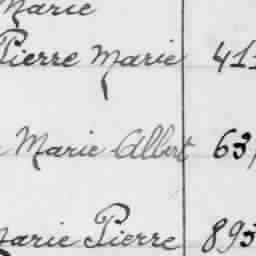 Marie
Pierre Marie 411
Marie Albert 63,
Marie Pierre 893